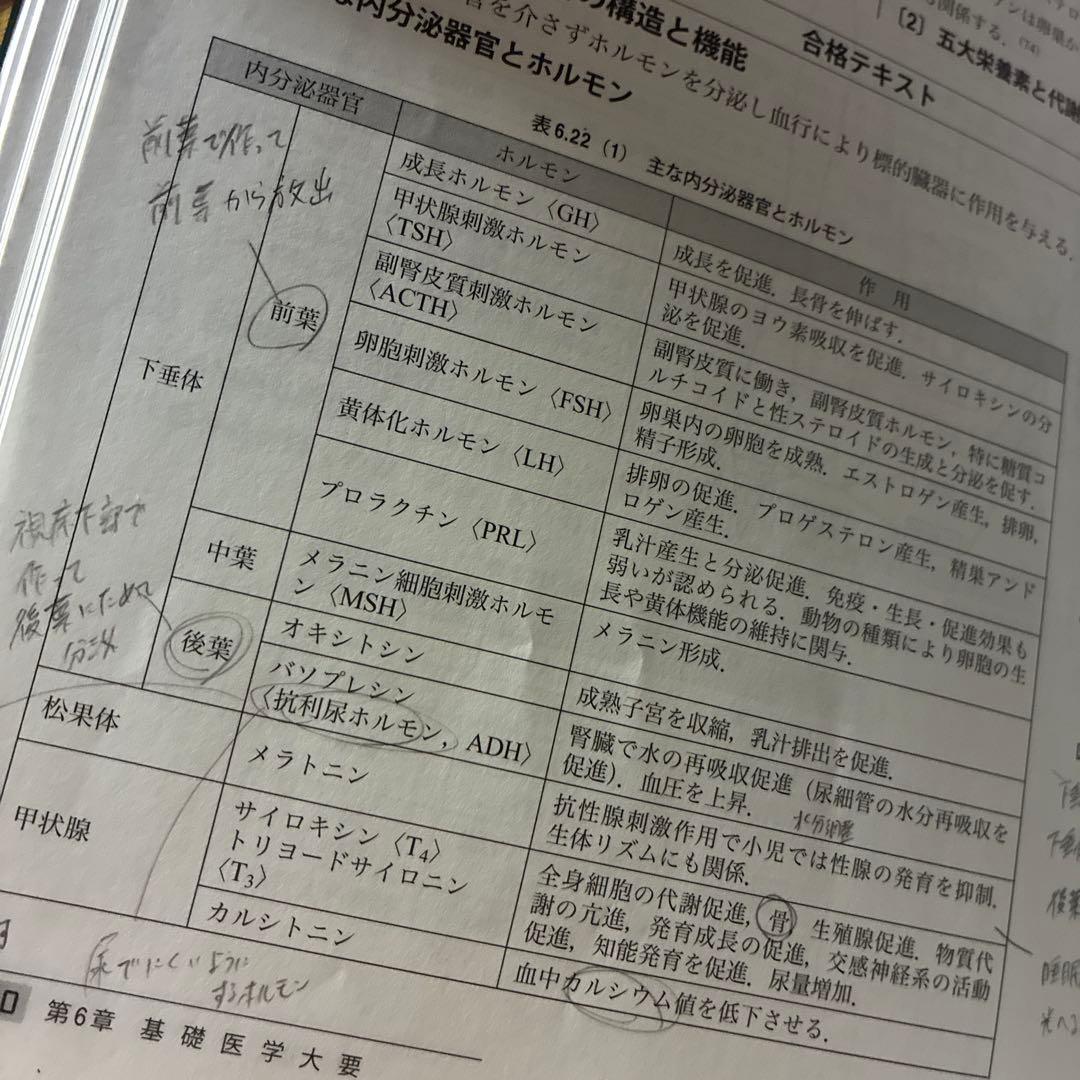 の構造と機能
合格テキスト
管を介さずホルモンを分泌し血行により標的臓器に作用を与える.
な内分泌器官とホルモン
[2] 五大栄養素と代謝
表6.22 (1) 主な内分泌器官とホルモン
内分泌器官
ホルモン
作用
前葉で作って
前葉から放出
下垂体
前葉
成長ホルモン〈GH〉
成長を促進．長骨を伸ばす．
甲状腺刺激ホルモン
〈TSH〉
甲状腺のヨウ素吸収を促進．サイロキシンの分
泌を促進．
副腎皮質刺激ホルモン
〈ACTH〉
副腎皮質に働き，副腎皮質ホルモン，特に糖質コ
ルチコイドと性ステロイドの生成と分泌を促す．
卵胞刺激ホルモン〈FSH〉
卵巣内の卵胞を成熟．エストロゲン産生，排卵，
精子形成．
黄体化ホルモン〈LH〉
排卵の促進．プロゲステロン産生，精巣アンド
ロゲン産生．
プロラクチン〈PRL〉
乳汁産生と分泌促進．免疫・生長・促進効果も
弱いが認められる．動物の種類により卵胞の生
長や黄体機能の維持に関与．
中葉
メラニン細胞刺激ホルモ
ン〈MSH〉
メラニン形成．
視床下部で
作って
後葉にためて
分泌
後葉
オキシトシン
成熟子宮を収縮，乳汁排出を促進．
バソプレシン
〈抗利尿ホルモン，ADH〉
腎臓で水の再吸収促進（尿細管の水分再吸収を
促進）．血圧を上昇．
水分調整
松果体
メラトニン
抗性腺刺激作用で小児では性腺の発育を抑制．
生体リズムにも関係．
甲状腺
サイロキシン〈T4〉
トリヨードサイロニン
〈T3〉
全身細胞の代謝促進，骨，生殖腺促進．物質代
謝の亢進，発育成長の促進，交感神経系の活動
促進，知能発育を促進．尿量増加．
カルシトニン
血中カルシウム値を低下させる．
尿でにくいように
するホルモン
第6章 基礎医学大要